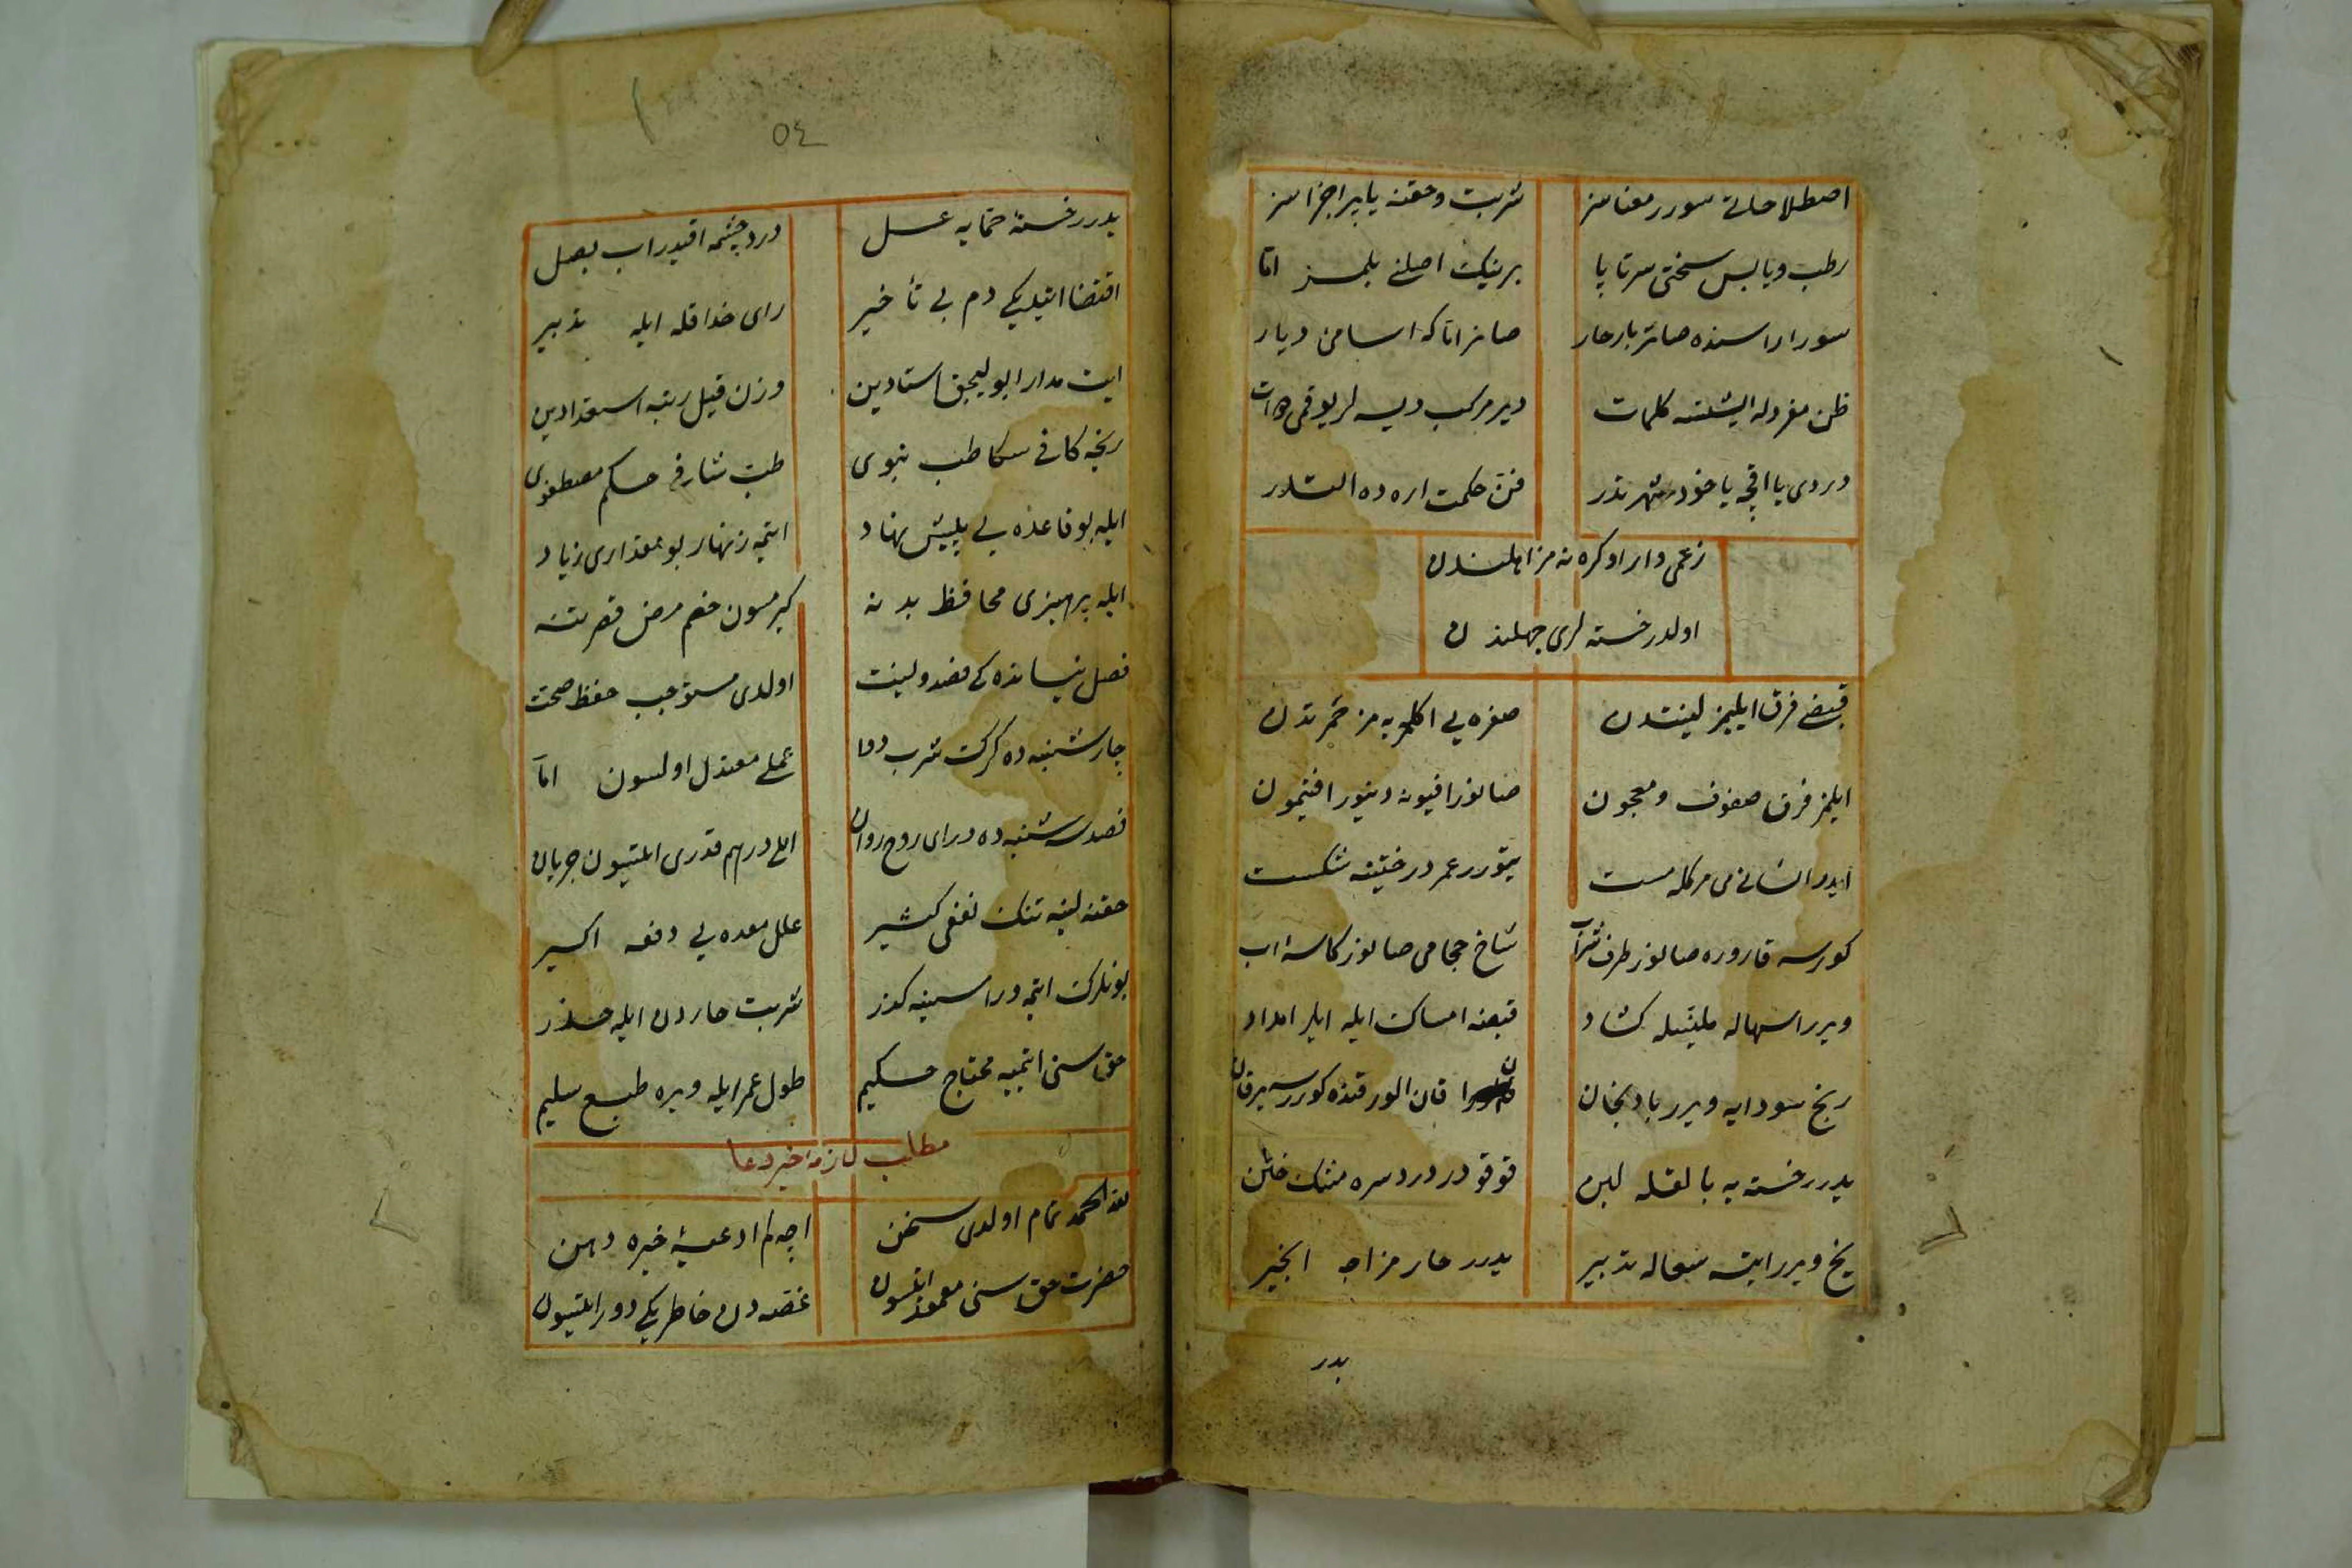 اصطلاحاتی سورر معناسز شربت و حقنه یاپر اجزاسز
رطب و یابس سختی سرتاپا برینك اصلنی بلمز اما
سورار اراسنده صانر بارحار صانر اناكه اسامئ دیار
ظن مفردله ایشتسه كلمات دیر مركب دیسه لر یوقمی
دردی یا اقچه یاخود شهرتدر فن حكمت اره ده التدر
زعمی وار اوكره نه مز اهلندن
اولدرر خسته لری جهلندن
قبضی فرق ایلیمز لینتدن صفره یی اكلمیه مز حمرتدن
ایلمز فرق صفوف و معجون صانور افیونه دینور افتیمون
ایدر انسانی می مركله مست یتورر عمر درختینه شكست
كورسه قاروره صانور ظرف شراب شاخ حجامی صانور كاسهٔ اب
ویرر اسهاله ملینله كشاد قبضه امساك ایله ایلر امداد
رنج سودایه ویرر بادنجان قان الور قنده كورر سه یرقان
یدرر خسته یه باقله لبن قوقودر درد سره مشك ختن
یخ ویرر ایتسه سعاله تدبیر یدرر حار مزاجه انجیر
یدر
٥٤
یدرر خستهٔ حمایه عسل درد چشمه اقیدر اب بصل
اقتضا ایتدیكی دم بی تأخیر رای حذاقله ایله تدبیر
ایت مدارا بولیجق استادین وزن قیل رتبه استعدادین
رنجه كافی سكا طب نبوی طب شارفی حكم مصطفوی
ایله بو قاعده یی پیش نهاد ایتمه زنهار بو مقداری زیاد
ایله پرهیزی محافظ بدنه كیرمسون خصم مرض قصر تنه
فصل نیسانده كی فصد و لینت اولدی مستوجب حفظ صحت
چارشنبه ده كرك شرب دوا عملی معتدل اولسون اما
فصد سه شنبه ده در ای روح روان اللی درهم قدری ایلسون جریان
حقنه لینه تنك نفعی كثیر علل معده یی دفعه اكسیر
بونلرك ایتمه وراسینه كذر شربت حاردن ایله حذر
حق سنی ایتمیه محتاج حكیم طول عمر ایله ویره طبع سلیم
مطلب لازمهٔ خیر دعا
لله الحمد تمام اولدی سخن اچه لم ادعیهٔ خیره دهن
حضرت حق سنی معمور ایلسون غصه دن خاطریكی دور ایلسون